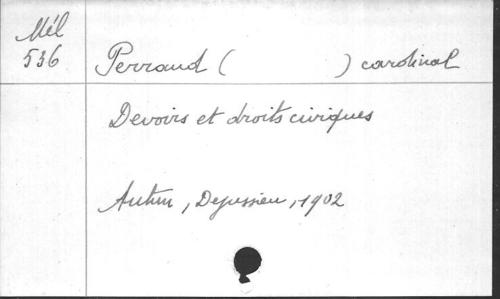 Mél
536
Perraud ( ) cardinal
Devoirs et droits civiques
Autun, Dejussieu, 1902